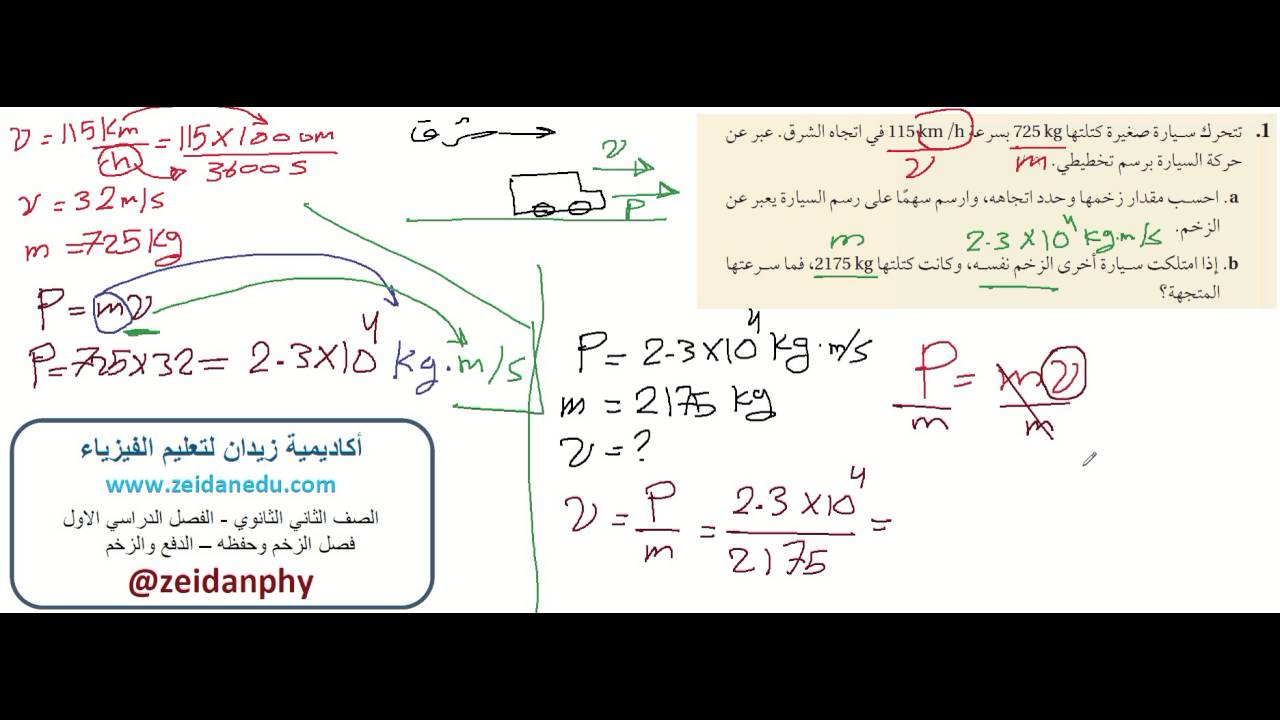 1. تتحرك سيارة صغيرة كتلتها 725 kg بسرعة 115 km/h في اتجاه الشرق. عبر عن
حركة السيارة برسم تخطيطي.
v
m
a. احسب مقدار زخمها وحدد اتجاهه، وارسم سهمًا على رسم السيارة يعبر عن
الزخم.
m
2.3 × 10⁴ kg.m/s
b. إذا امتلكت سيارة أخرى الزخم نفسه، وكانت كتلتها 2175 kg، فما سرعتها
المتجهة؟
شرق
v
P
v = 115 km/h = 115 × 1000 m / 3600 s
v = 32 m/s
m = 725 kg
P = mv
P = 725 × 32 = 2.3 × 10⁴ kg.m/s
P = 2.3 × 10⁴ kg.m/s
m = 2175 kg
v = ?
v = P/m = 2.3 × 10⁴ / 2175 =
P/m = mv/m
أكاديمية زيدان لتعليم الفيزياء
www.zeidanedu.com
الصف الثاني الثانوي - الفصل الدراسي الاول
فصل الزخم وحفظه – الدفع والزخم
@zeidanphy